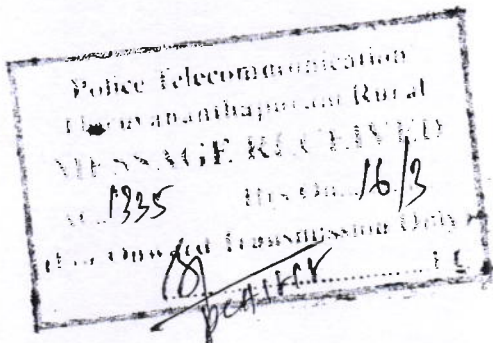 Police Telecommunication
Thiruvananthapuram Rural
MESSAGE RECEIVED
At...1335 Hrs On...16/3
Onward Transmission Only